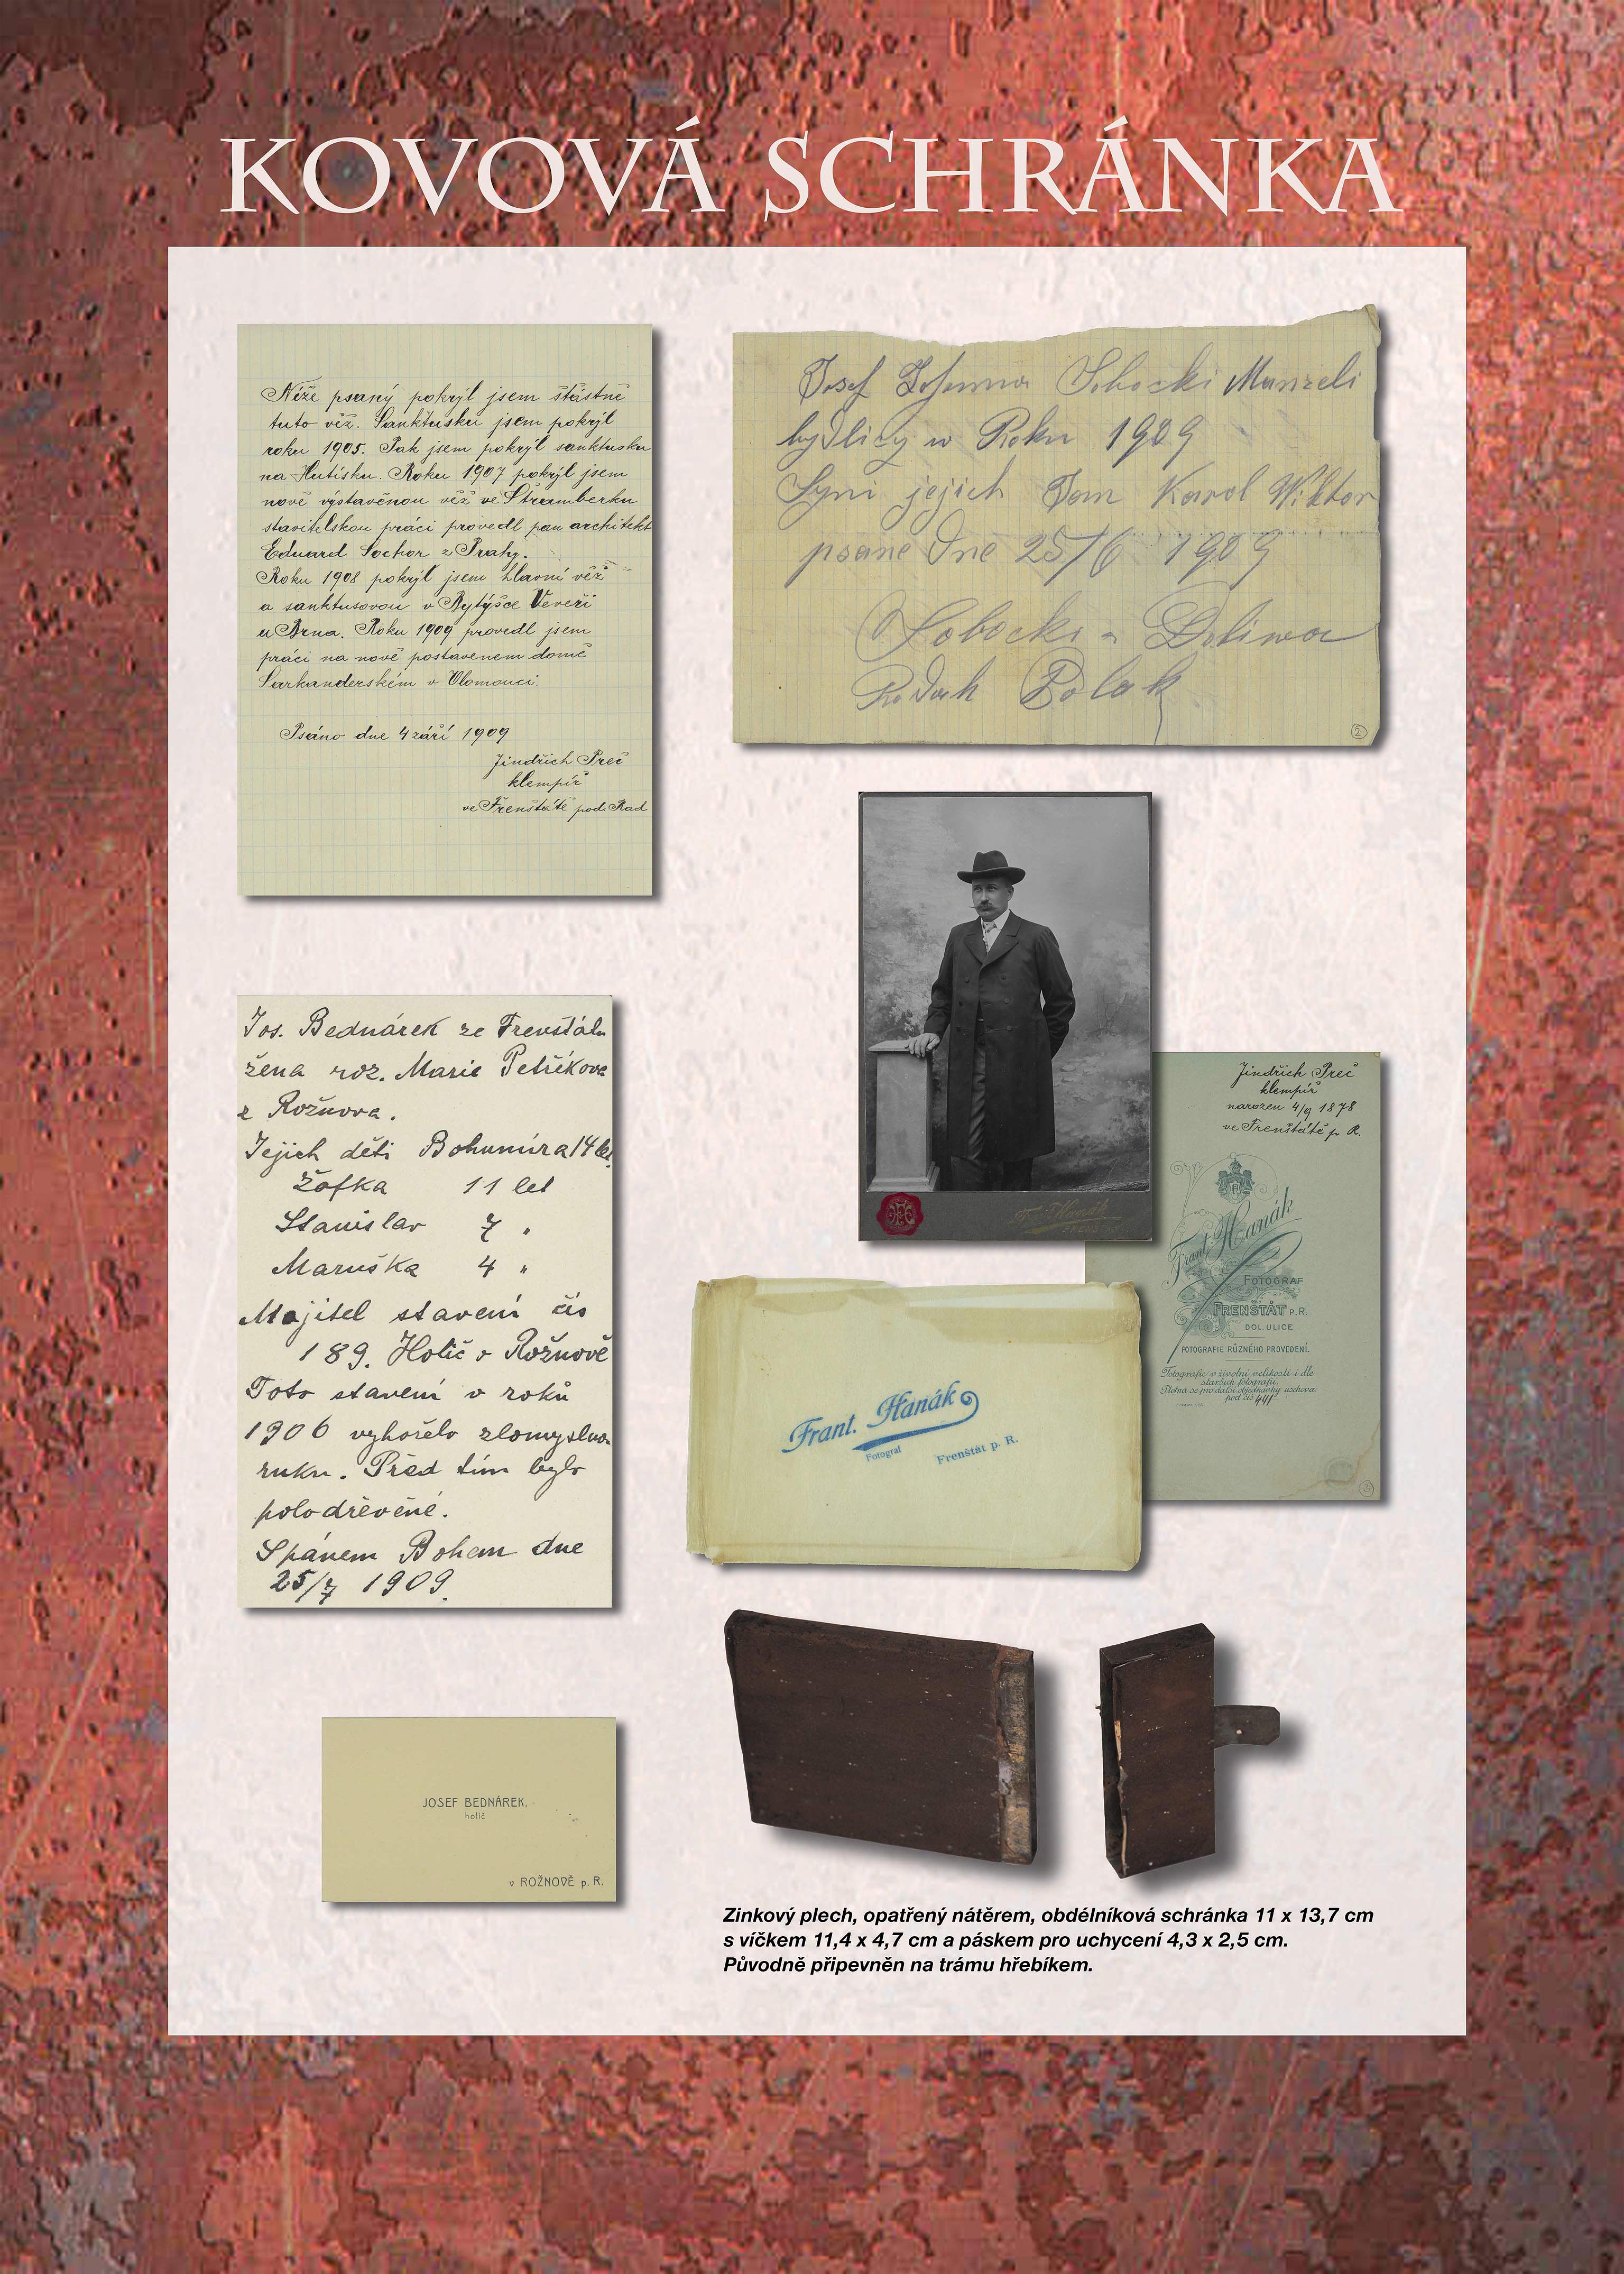 KOVOVÁ SCHRÁNKA
Níže psaný pokrýl jsem štástně
tuto věž. Sanktusku jsem pokrýl
roku 1905. Pak jsem pokrýl sanktusku
na Hutisku. Roku 1907 pokrýl jsem
nově výstavěnou věž ve Štramberku
stavitelskou práci provedl pan architekt
Eduard Sochor z Prahy.
Roku 1908 pokrýl jsem hlavní věž
a sanktusovou v Bytýšce Veveří
u Brna. Roku 1909 provedl jsem
práci na nově postavenem domě
Sarkanderském v Olomouci.
Psáno dne 4 září 1909
Jindřich Preč
klempíř
ve Frenštátě pod. Rad
Josef Sobocki Manzeli
bydlicy w Roku 1909
Syni jejich Jan Karol Wiktor
psane dne 25/6 1909
Sobocki - Doliwa
Rodak Polak
2
Jindřich Preč
klempíř
narozen 4/9 1878
ve Frenštátě p. R.
Frant. Hanák
FOTOGRAF
FRENŠTÁT P.R.
DOL. ULICE
FOTOGRAFIE RŮZNÉHO PROVEDENÍ.
Fotografie v životní velikosti i dle
starších fotografií.
Plotna se pro další objednávky uschova
pod čís 441
Frant. Hanák
Fotograf Frenštát p. R.
Jos. Bednárek ze Frenštátu
žena roz. Marie Petříkova
z Rožnova.
Jejich děti Bohumíra 14 let
Žofka 11 let
Stanislav 7 "
Maruška 4 "
Majitel stavení čís
189. Holič v Rožnově
Toto stavení v roků
1906 vyhořelo zlomyslnou
ruku. Před tím bylo
polodřevěné.
S pánem Bohem dne
25/7 1909.
JOSEF BEDNÁREK,
holič
v ROŽNOVĚ p. R.
Zinkový plech, opatřený nátěrem, obdélníková schránka 11 x 13,7 cm
s víčkem 11,4 x 4,7 cm a páskem pro uchycení 4,3 x 2,5 cm.
Původně připevněn na trámu hřebíkem.